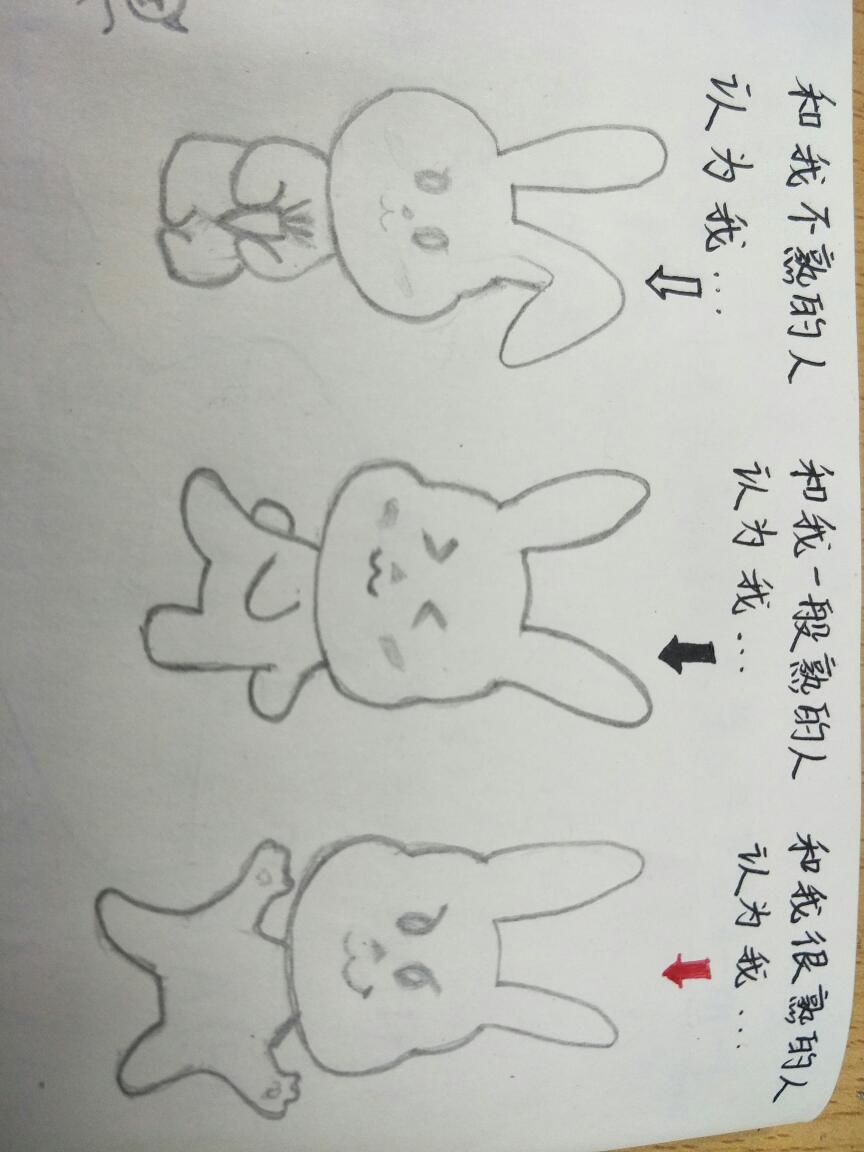 和我不熟的人
认为我...
和我一般熟的人
认为我...
和我很熟的人
认为我...